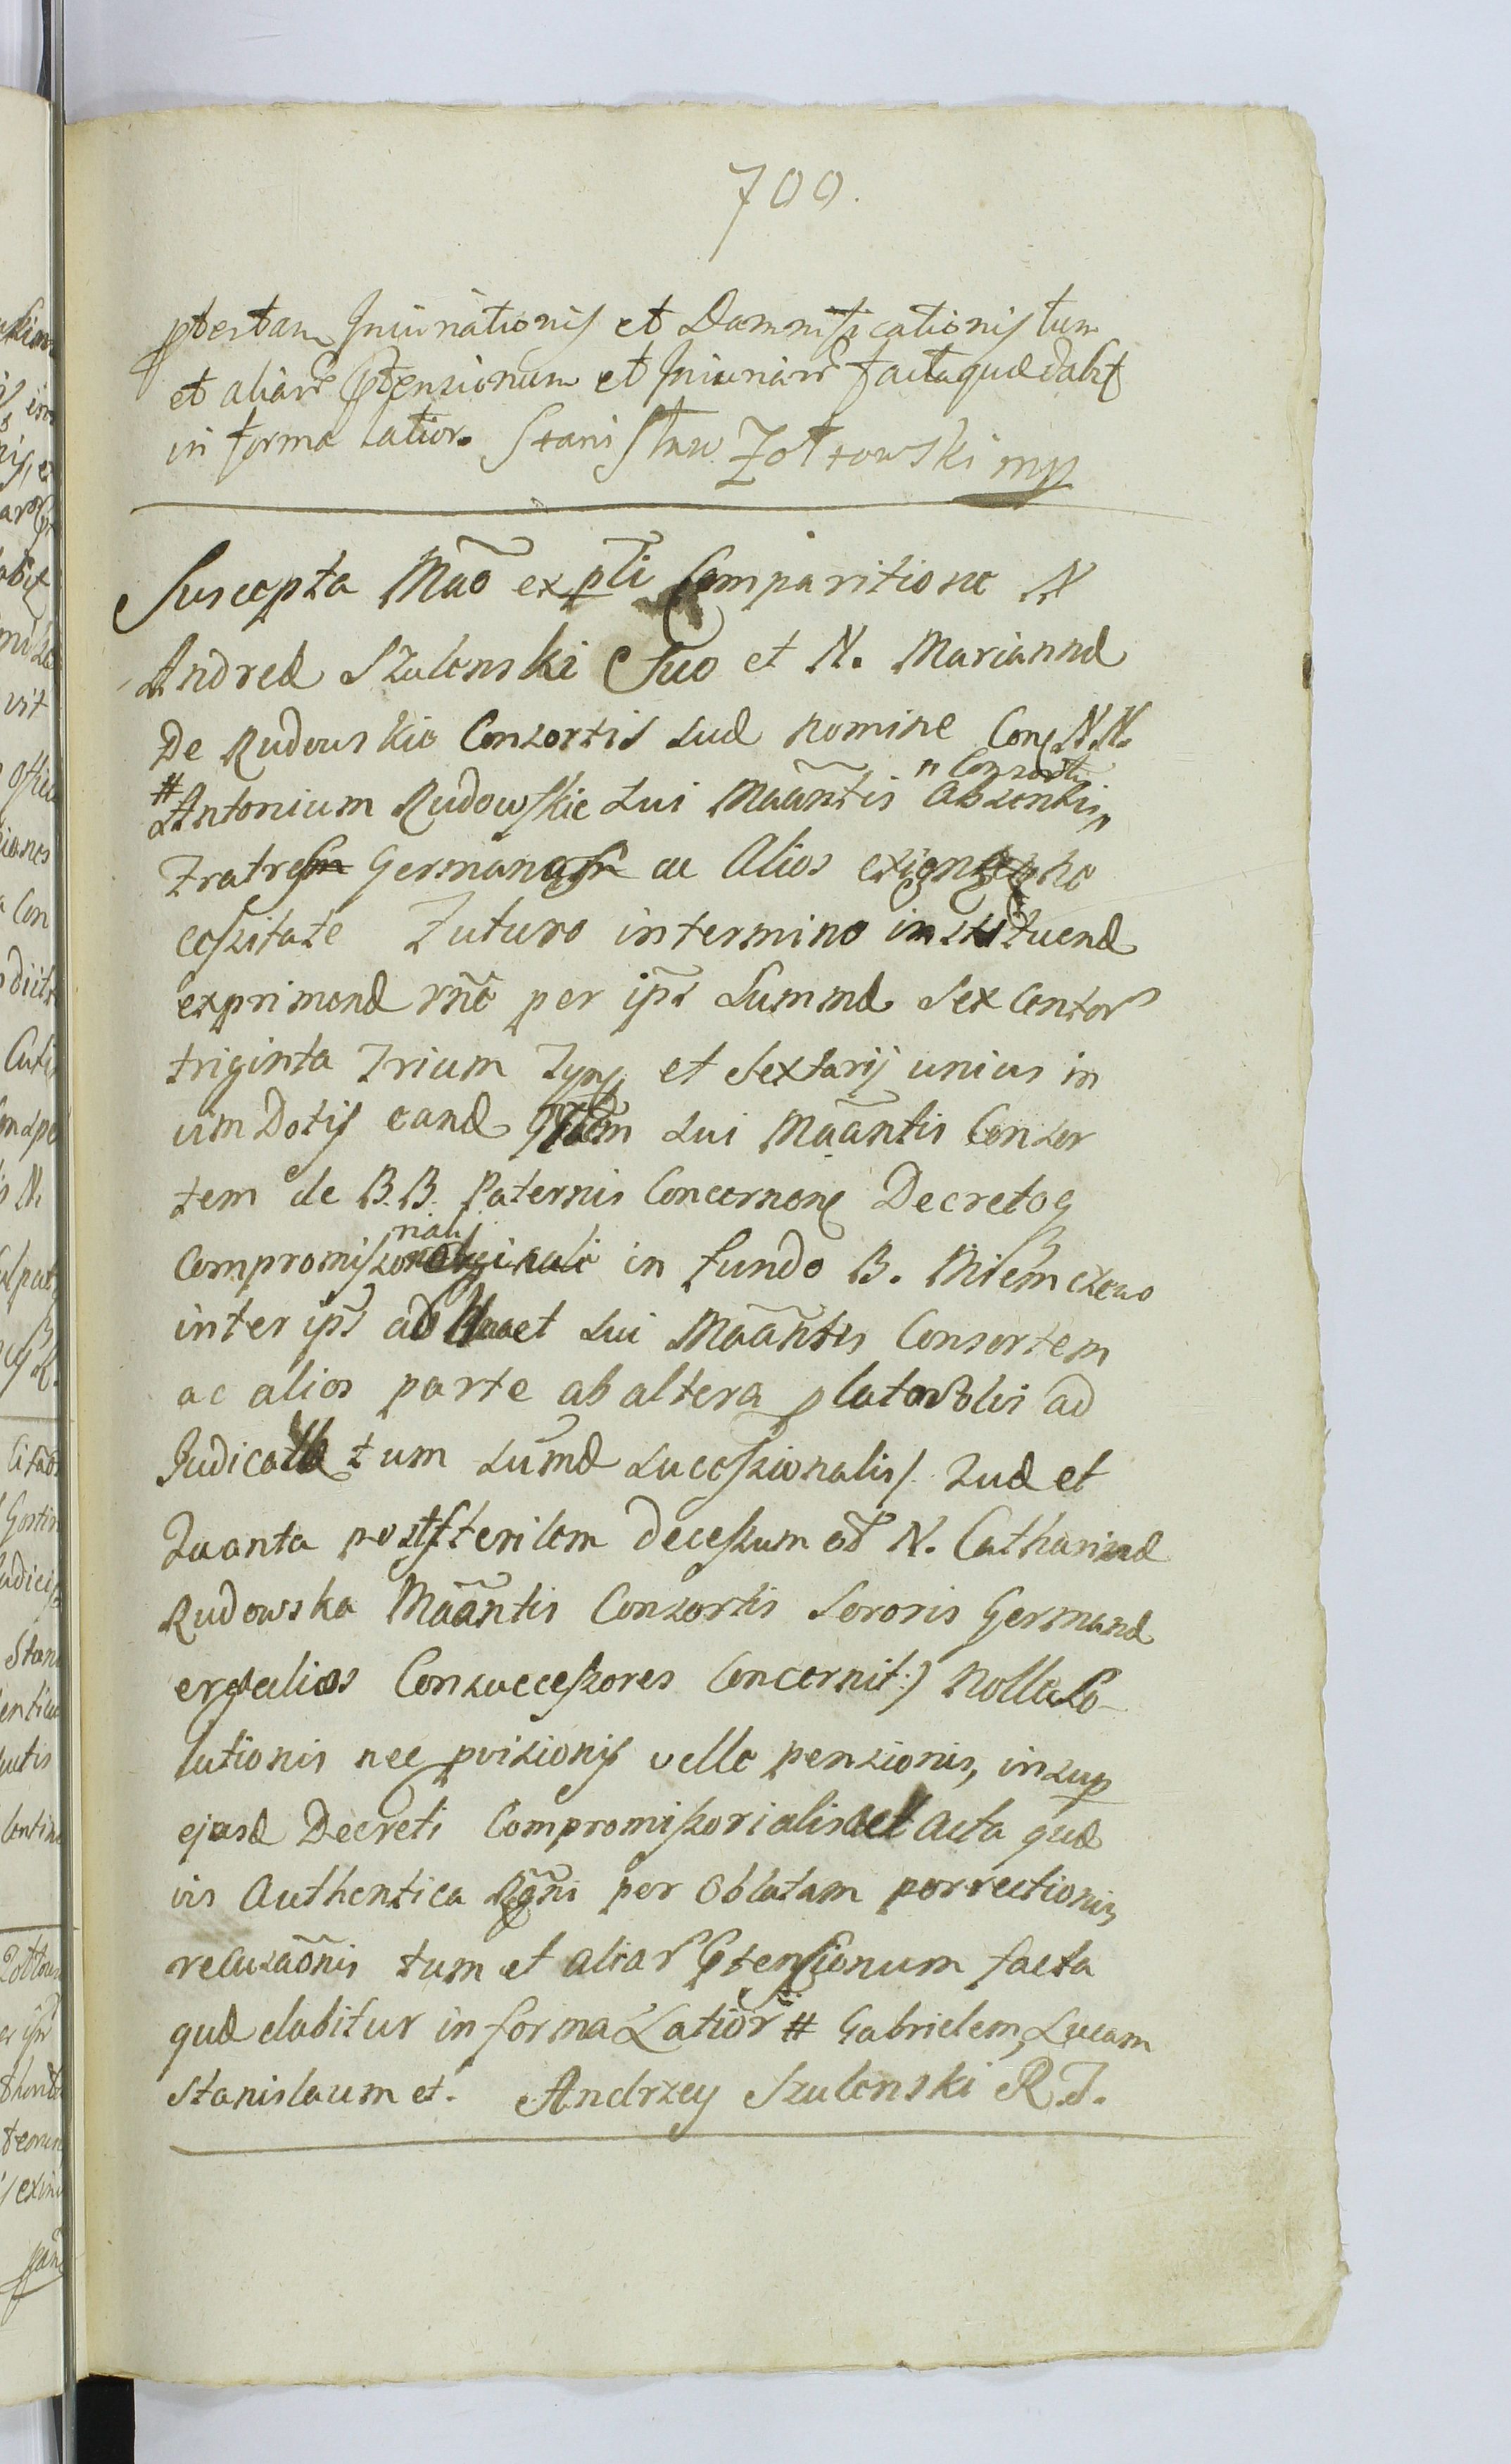 700.
ptestam Iniuriationis et Damnificationis tum
et aliar ptensionum et Iniuriar facta quæ dabit
in forma latior. Stanisław Zołtowski mp
Suscepta Mão ex pti Comparitione N
Andreæ Szulenski Suo et N. Mariannæ
De Rudowskie Consortis suæ nomine Con NN.
# Antonium Rudowskie sui Maãntis " Consortis
Absentis "
Fratres Germanos ac Alios exigen ne
cessitate Futuro in termino instituend
exprimend rñe per ips Summæ Sex Centor
triginta Trium Tynf et Sextarij unius in
vim Dotis eand sui Maãntis Consor
tem de B.B. Paternis Concernen Decretoq
Compromisso riali in fundo B. Niemczewo
inter ips ab et sui Maãntis Consortem
ac alios parte ab altera lato Solvi ad
Judica tum sumæ Sucessionalis / Quæ et
Quanta post sterilem decessum ol N. Catharinæ
Rudowska Maãntis Consortis Sororis Germanæ
erga alios Consuccessores Concernit :) Nolle So-
lutionis nec pvisionis velle pensionis, insup
ejusd Decreti Compromissorialis ad Acta quæ
vis Authentica Rgñi per Oblatam porrectionis
recusaõnis tum et aliar Ptensionum facta
quæ dabitur in forma Latior # Gabrielem, Lucam
Stanislaum et. Andrzey Szulenski R.J.